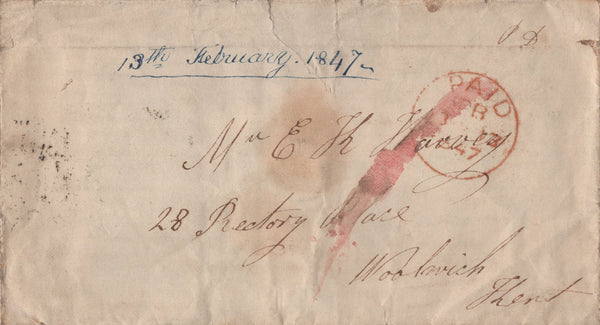 P D
13th February. 1847
PAID
1847
Mr E K Harvey
28 Rectory Place
Woolwich
Kent